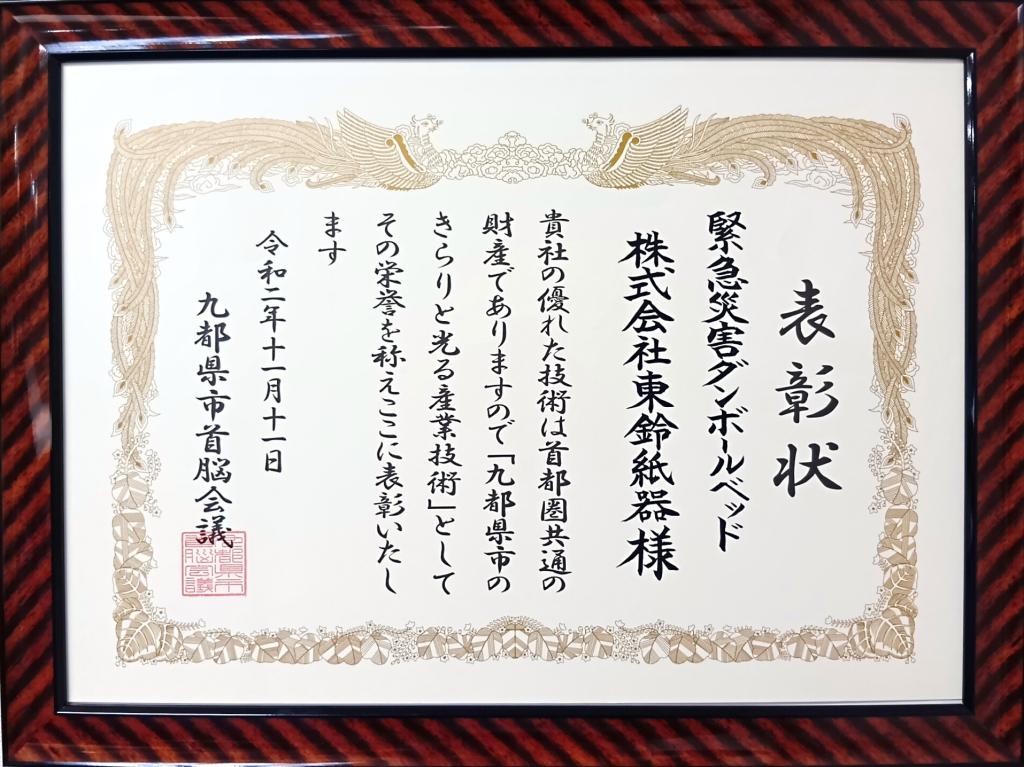 表彰状
緊急災害ダンボールベッド
株式会社東鈴紙器様
貴社の優れた技術は首都圏共通の
財産でありますので「九都県市の
きらりと光る産業技術」として
その栄誉を称えここに表彰いたし
ます
令和二年十一月十一日
九都県市首脳会議
九都県市
首脳会議